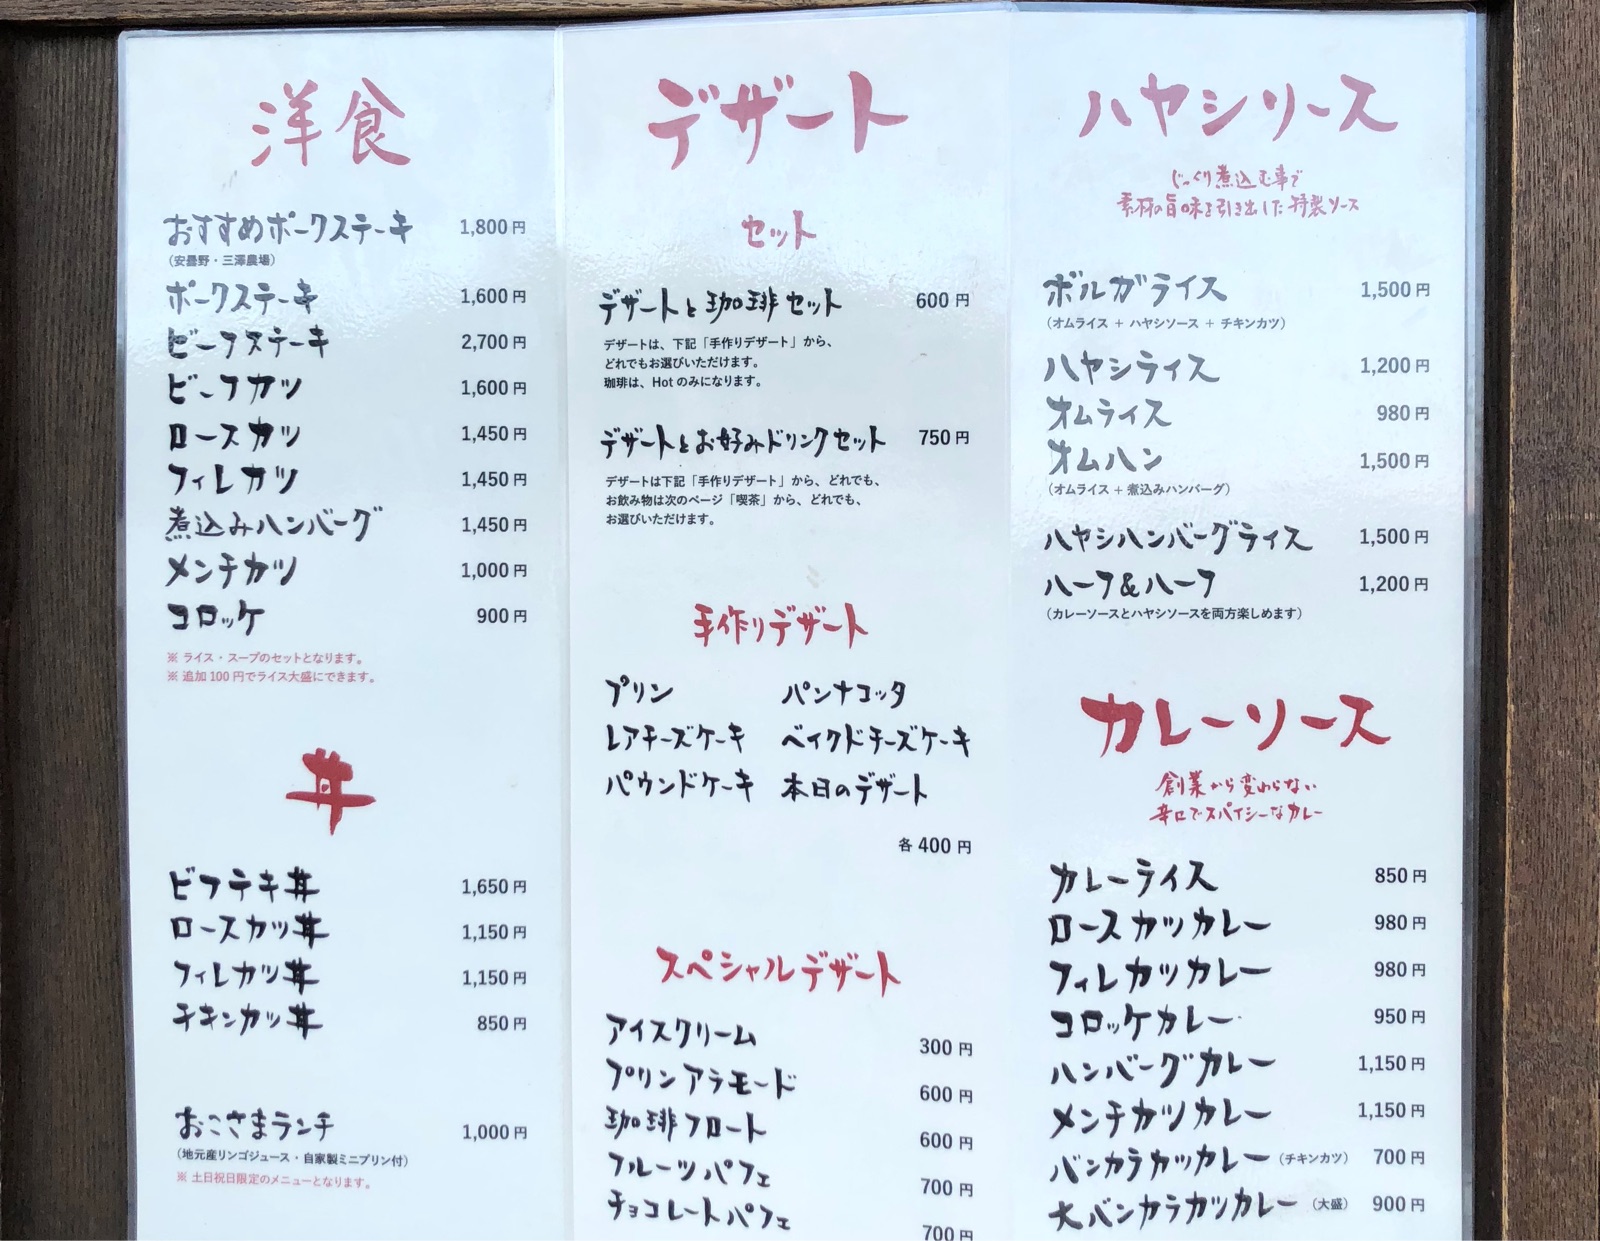 洋食
おすすめポークステーキ 1,800円
（安曇野・三澤農場）
ポークステーキ 1,600円
ビーフステーキ 2,700円
ビーフカツ 1,600円
ロースカツ 1,450円
フィレカツ 1,450円
煮込みハンバーグ 1,450円
メンチカツ 1,000円
コロッケ 900円
※ ライス・スープのセットとなります。
※ 追加100円でライス大盛にできます。
丼
ビフテキ丼 1,650円
ロースカツ丼 1,150円
フィレカツ丼 1,150円
チキンカツ丼 850円
おこさまランチ 1,000円
（地元産リンゴジュース・自家製ミニプリン付）
※ 土日祝日限定のメニューとなります。
デザート
セット
デザートと珈琲セット 600円
デザートは、下記「手作りデザート」から、
どれでもお選びいただけます。
珈琲は、Hotのみになります。
デザートとお好みドリンクセット 750円
デザートは下記「手作りデザート」から、どれでも、
お飲み物は次のページ「喫茶」から、どれでも、
お選びいただけます。
手作りデザート
プリン パンナコッタ
レアチーズケーキ ベイクドチーズケーキ
パウンドケーキ 本日のデザート
各400円
スペシャルデザート
アイスクリーム 300円
プリンアラモード 600円
珈琲フロート 600円
フルーツパフェ 700円
チョコレートパフェ 700円
ハヤシソース
じっくり煮込む事で
素材の旨味を引き出した特製ソース
ボルガライス 1,500円
（オムライス + ハヤシソース + チキンカツ）
ハヤシライス 1,200円
オムライス 980円
オムハン 1,500円
（オムライス + 煮込みハンバーグ）
ハヤシハンバーグライス 1,500円
ハーフ&ハーフ 1,200円
（カレーソースとハヤシソースを両方楽しめます）
カレーソース
創業から変わらない
辛口でスパイシーなカレー
カレーライス 850円
ロースカツカレー 980円
フィレカツカレー 980円
コロッケカレー 950円
ハンバーグカレー 1,150円
メンチカツカレー 1,150円
バンカラカツカレー（チキンカツ） 700円
大バンカラカツカレー（大盛） 900円